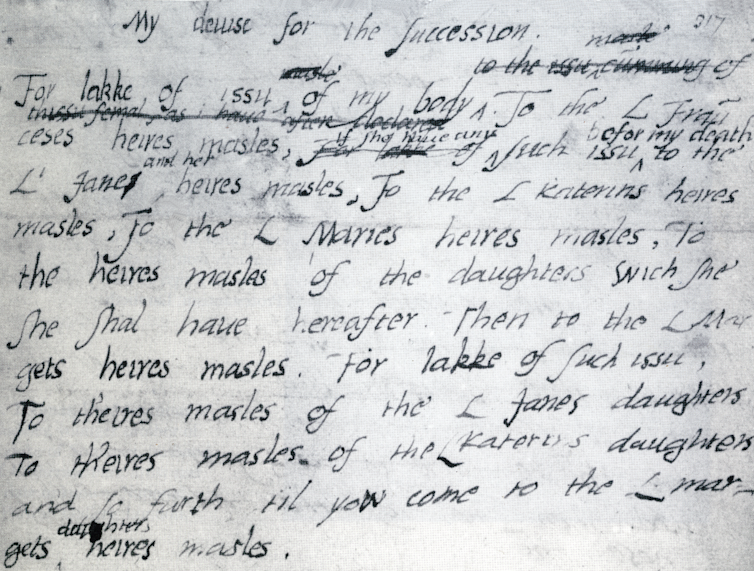 My deuise for the Succession.
317
male
to the issu cumming of
male
For lakke of issu of my body. To the L Frau
thissu femal, as i haue after declared
ceses heires masles, For lakke of such issu to the
if she haue any
befor my death
L' Janes heires masles, To the L Katerins heires
and her
masles, To the L Maries heires masles, To
the heires masles of the daughters wich she
she shal haue hereafter. Then to the L Mar
gets heires masles. For lakke of such issu,
To theires masles of the L Janes daughters
To theires masles of the L Katerins daughters
and so furth til yow come to the L mar–
daughters
gets heires masles.